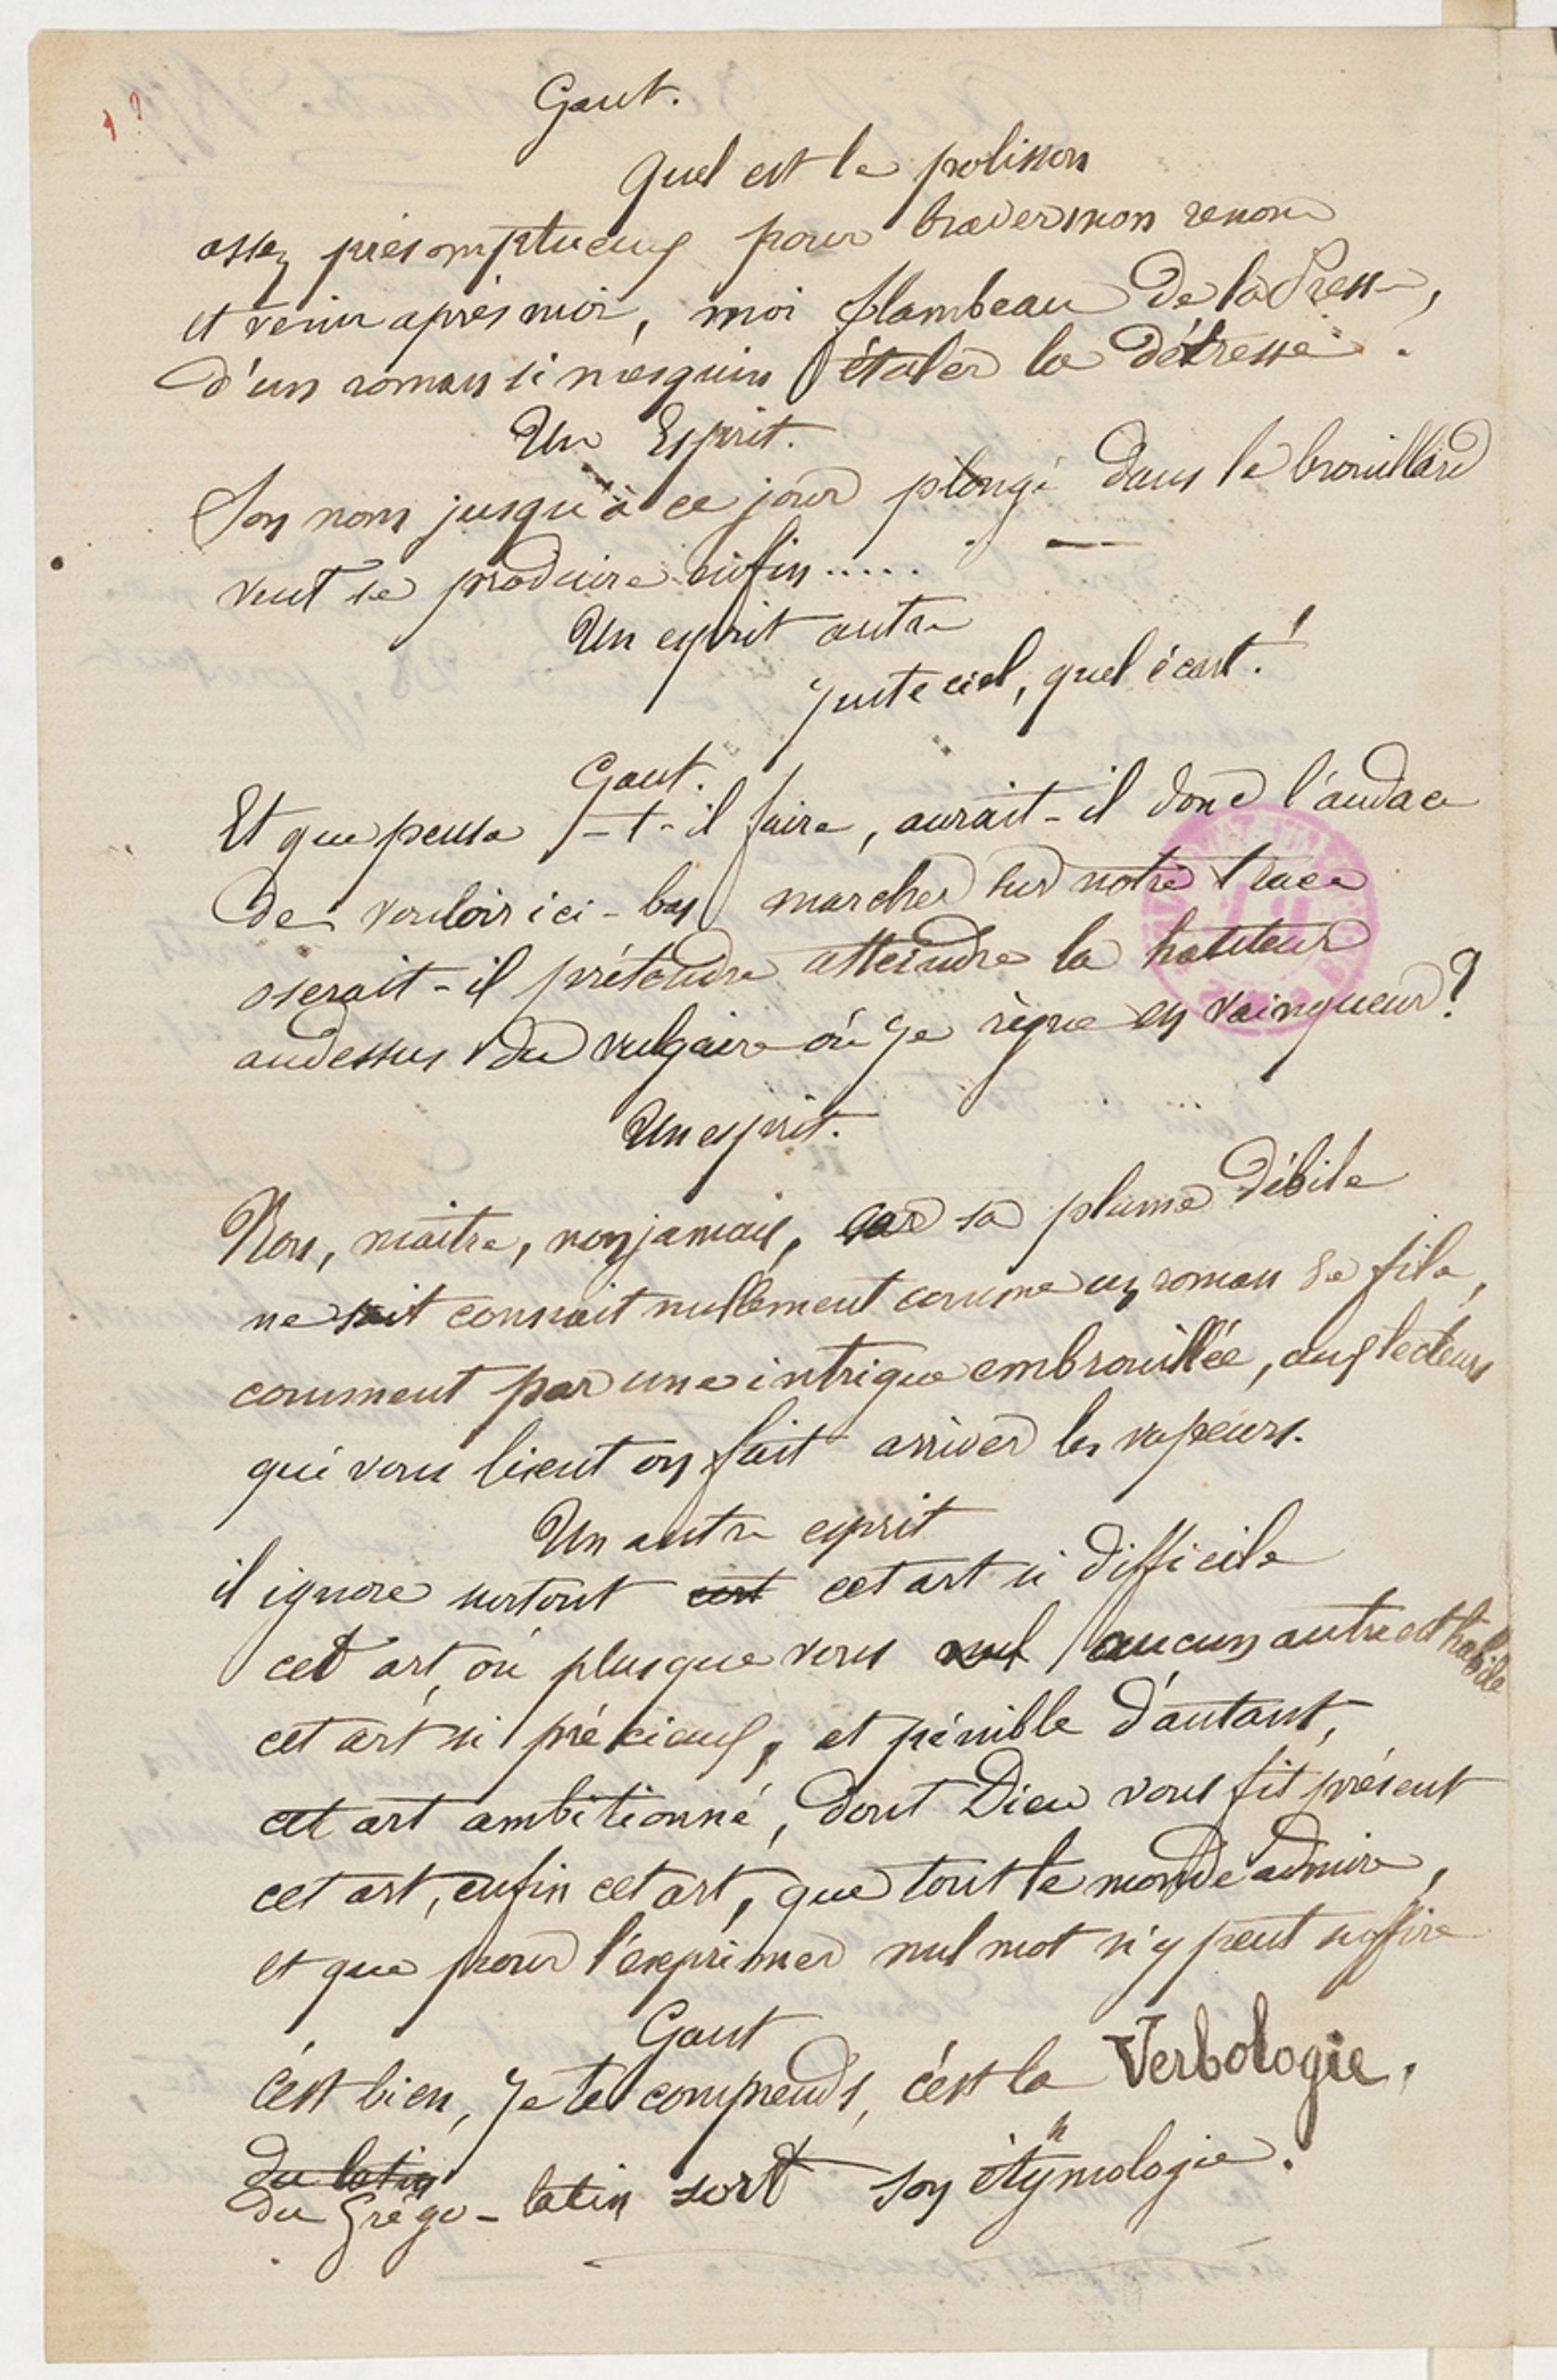 Gaut.
Quel est le polisson
assez présomptueux pour braver mon renom
et venir après moi, moi flambeau de la Presse,
d'un roman si mesquin étaler la détresse.
Un Esprit.
Son nom jusqu'à ce jour plongé dans le brouillard
veut se produire enfin.....
Un esprit autre
Juste ciel, quel écart!
Gaut.
Et que pense-t-il faire, aurait-il donc l'audace
de vouloir ici-bas marcher sur notre trace
oserait-il prétendre atteindre la hauteur
audessus du vulgaire où je règne en vainqueur?
Un esprit.
Non, maitre, non jamais, car sa plume débile
ne sait connait nullement comme un roman se file,
comment par une intrigue embrouillée, aux lecteurs
qui vous lisent on fait arriver les vapeurs.
Un autre esprit
il ignore surtout cet art si difficile
cet art, où plus que vous nul aucun autre est habile
cet art si précieux, et pénible d'autant,
cet art ambitionné, dont Dieu vous fit présent
cet art, enfin cet art, que tout le monde admire,
et que pour l'exprimer nul mot n'y peut suffire
Gaut
c'est bien, je te comprends, c'est la Verbologie,
du latin
du Grégo-latin sort son étymologie.